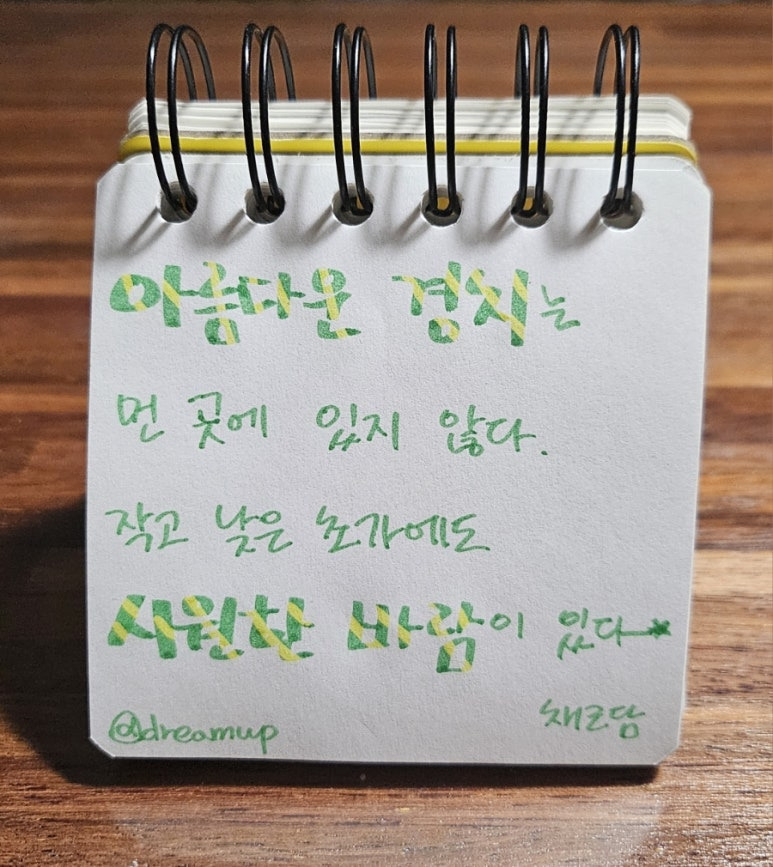 아름다운 경치는
먼 곳에 있지 않다.
작고 낮은 초가에도
시원한 바람이 있다
채근담
@dreamup